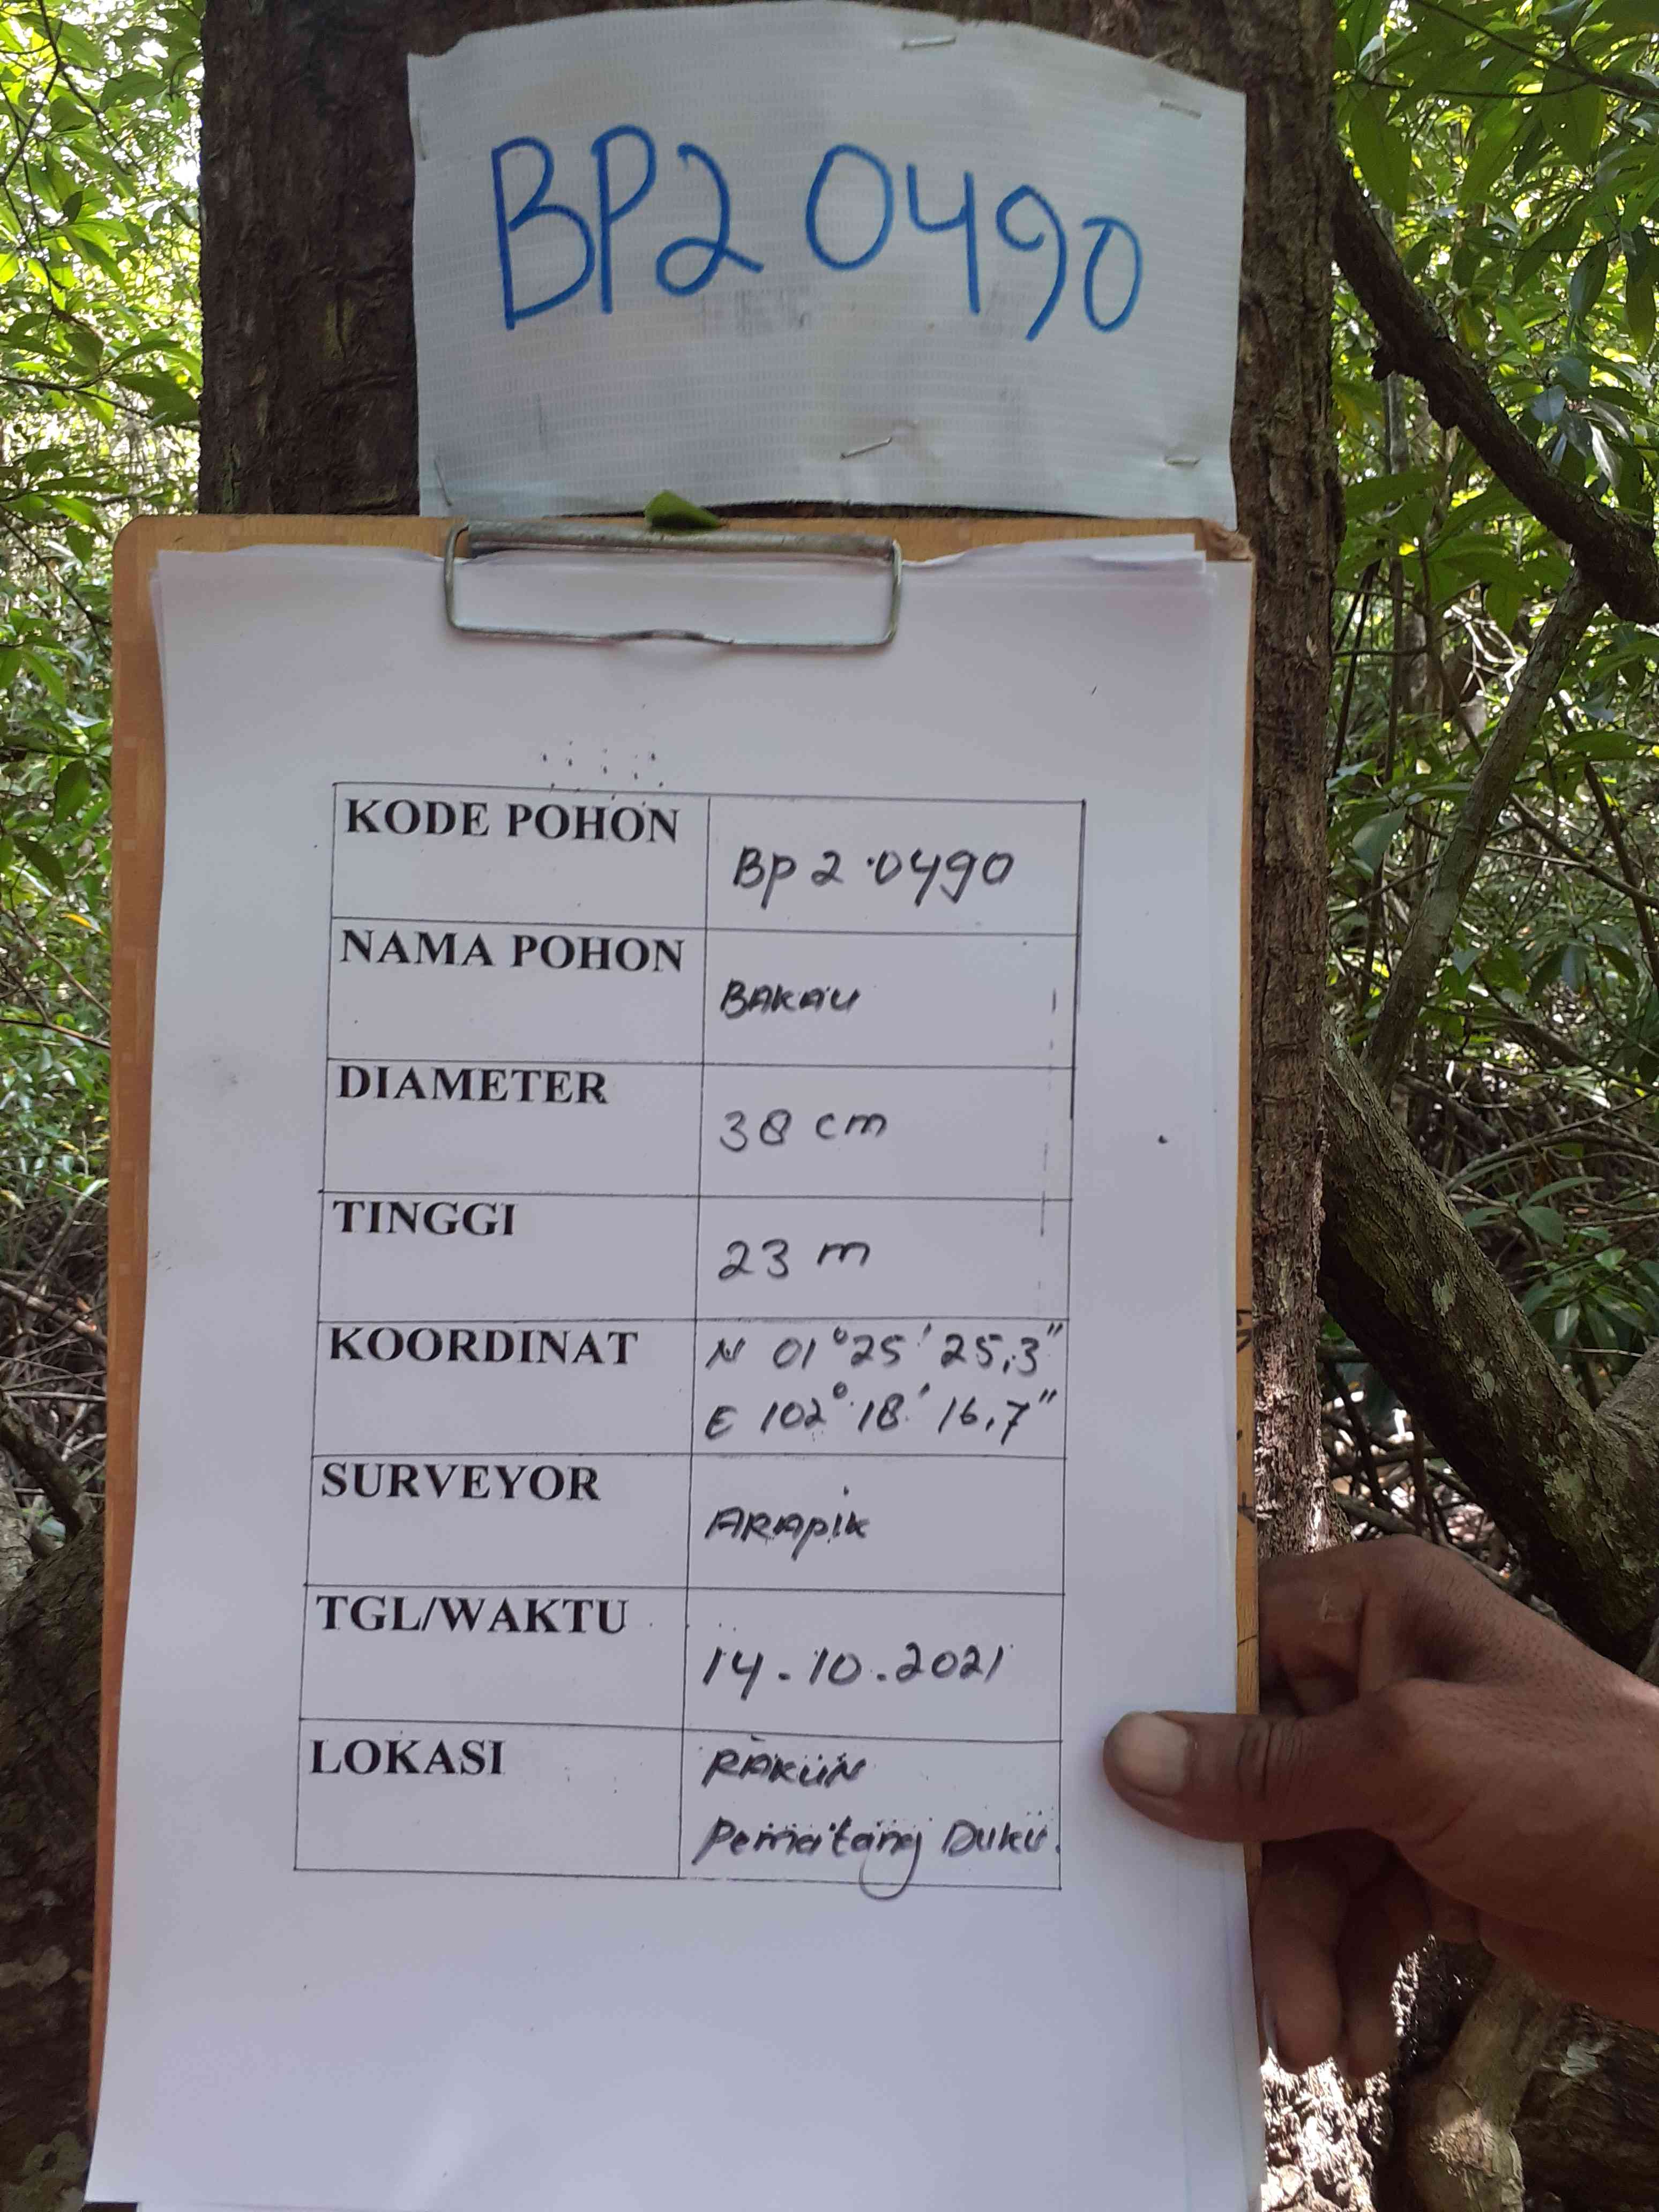 BP2 0490
KODE POHON
Bp 2.0490
NAMA POHON
BAKAU
DIAMETER
38 cm
TINGGI
23 m
KOORDINAT
N 01°25'25,3"
E 102°18'16,7"
SURVEYOR
ARApik
TGL/WAKTU
14.10.2021
LOKASI
RAKUN
Pematang Duku.